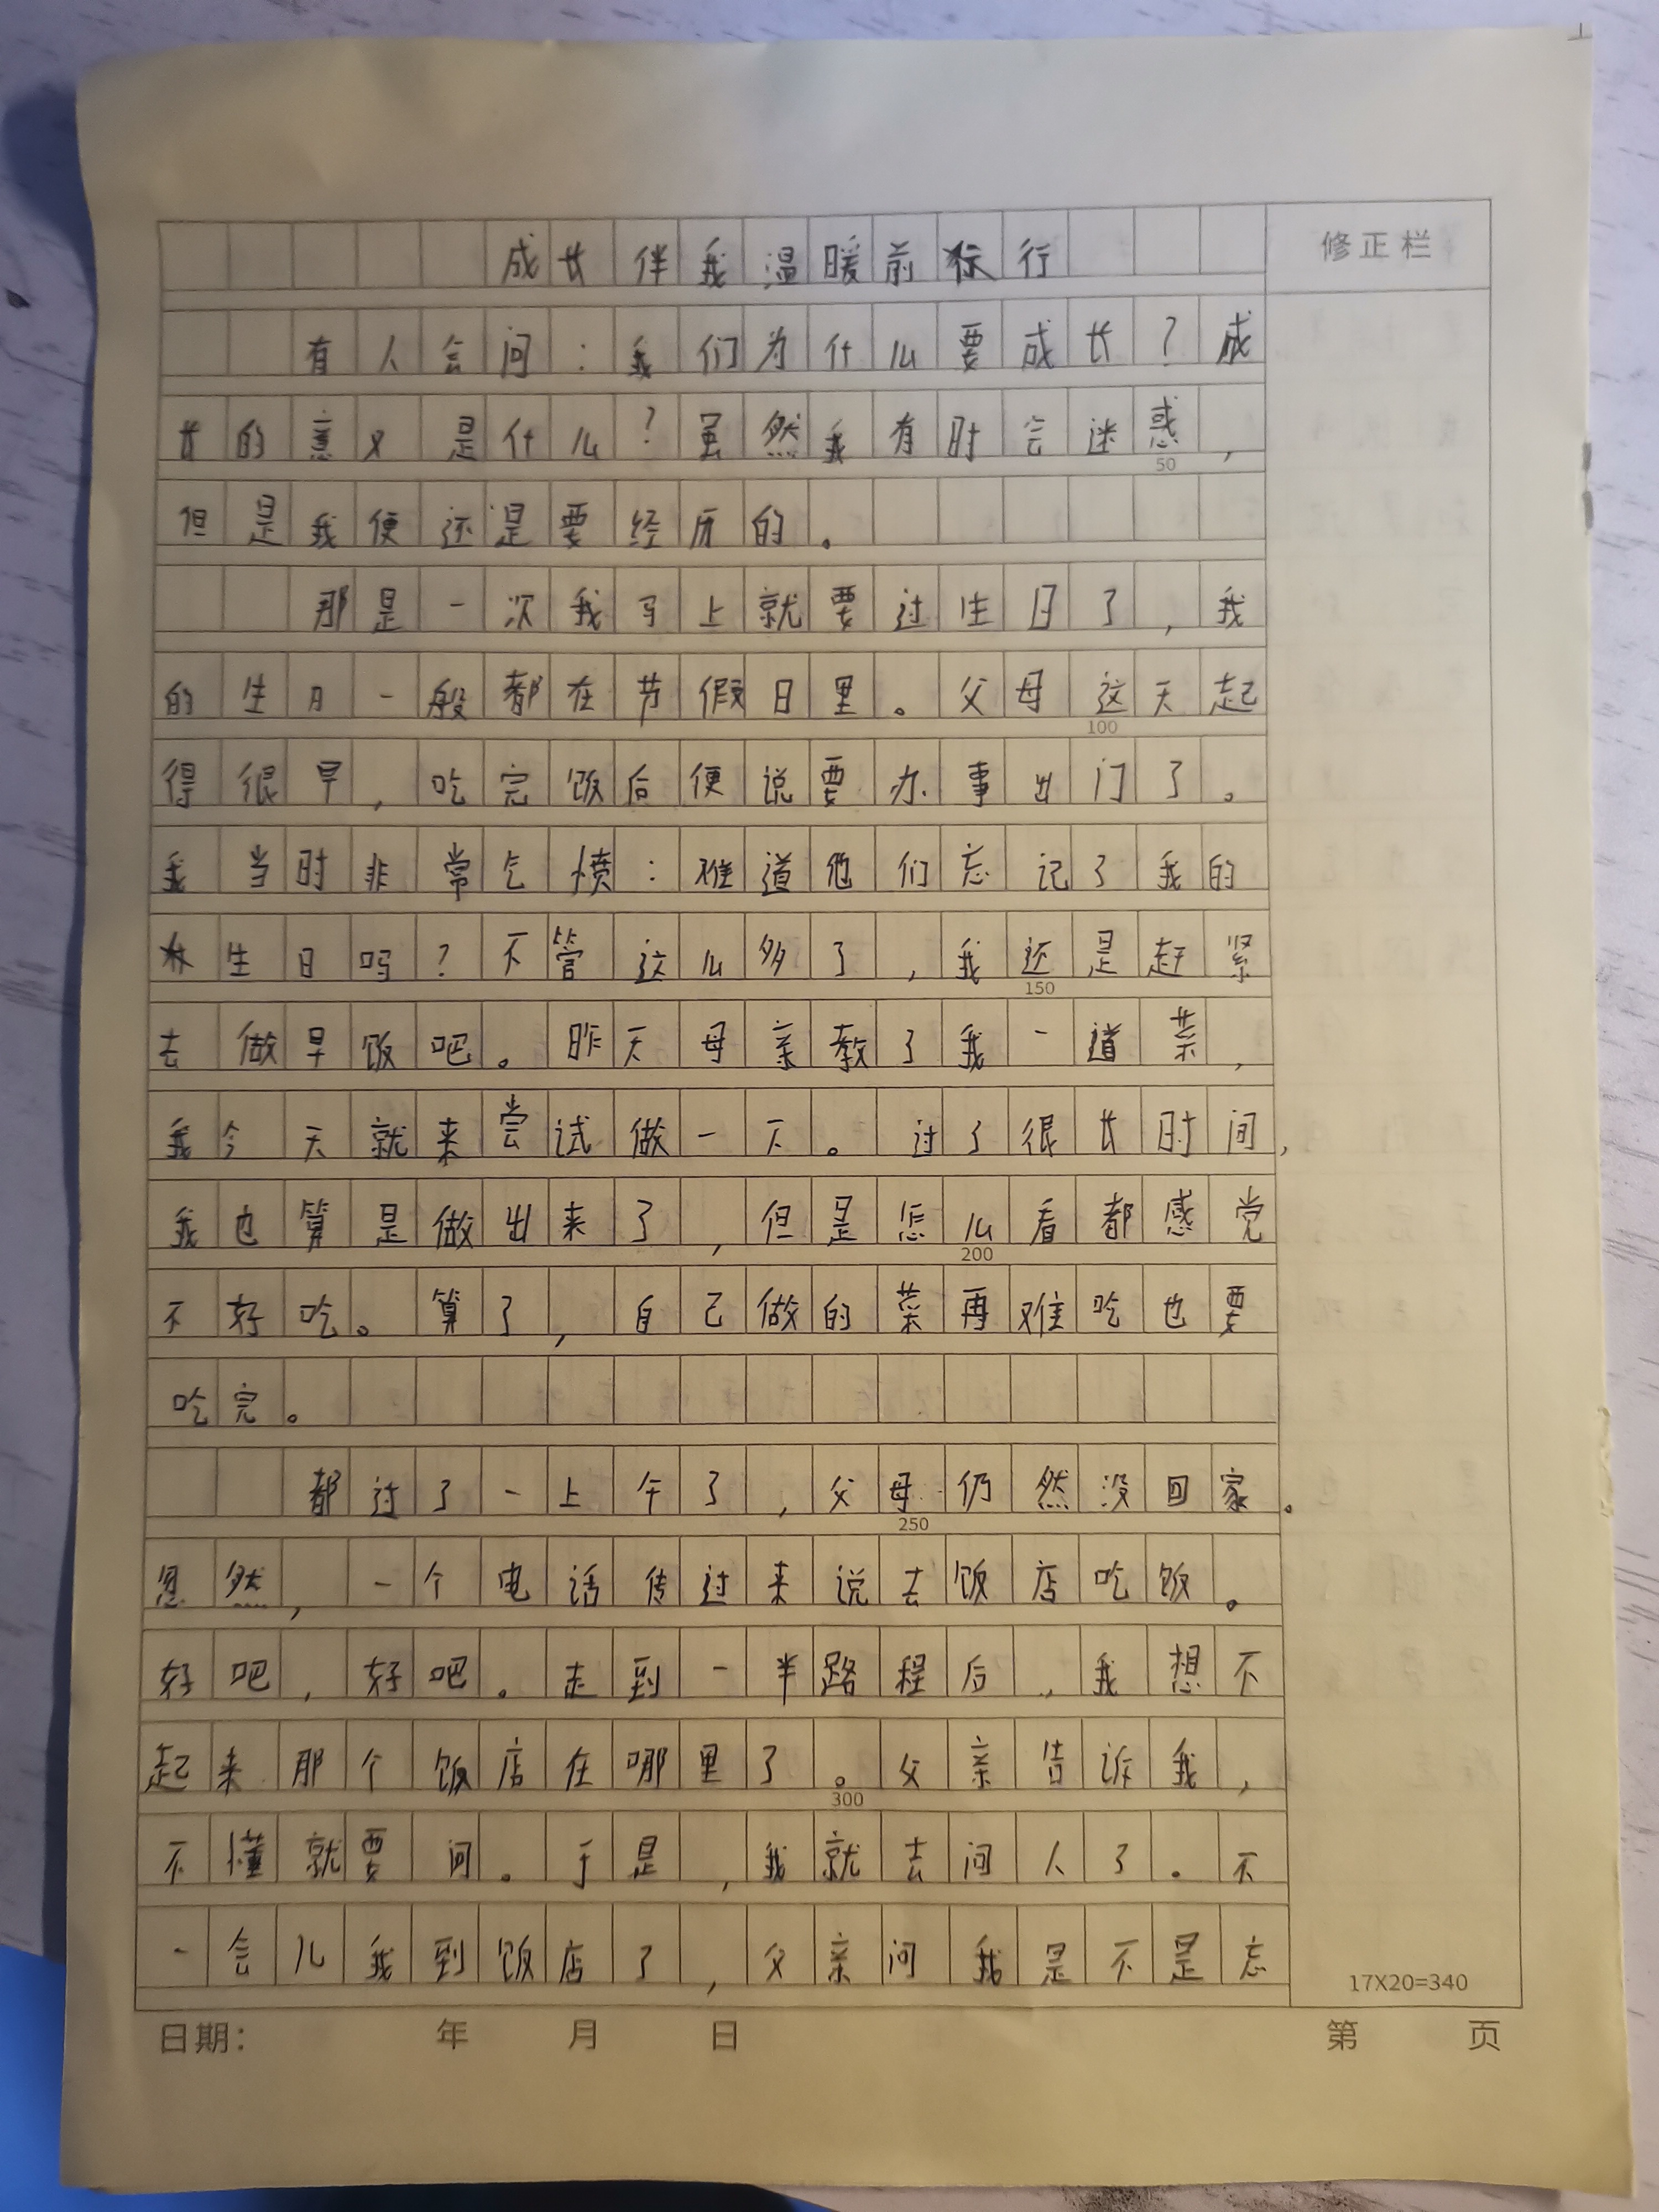 成长伴我温暖前行
修正栏
有人会问：我们为什么要成长？成
长的意义是什么？虽然我有时会迷惑，
50
但是我便还是要经历的。
那是一次我马上就要过生日了，我
的生日一般都在节假日里。父母这天起
100
得很早，吃完饭后便说要办事出门了。
我当时非常气愤：难道他们忘记了我的
生日吗？不管这么多了，我还是赶紧
150
去做早饭吧。昨天母亲教了我一道菜，
我今天就来尝试做一下。过了很长时间，
我也算是做出来了，但是怎么看都感觉
200
不好吃。算了，自己做的菜再难吃也要
吃完。
都过了一上午了，父母仍然没回家。
250
忽然，一个电话传过来说去饭店吃饭。
好吧，好吧。走到一半路程后，我想不
起来那个饭店在哪里了。父亲告诉我，
300
不懂就要问。于是，我就去问人了。不
一会儿我到饭店了，父亲问我是不是忘
17X20=340
日期： 年 月 日 第 页